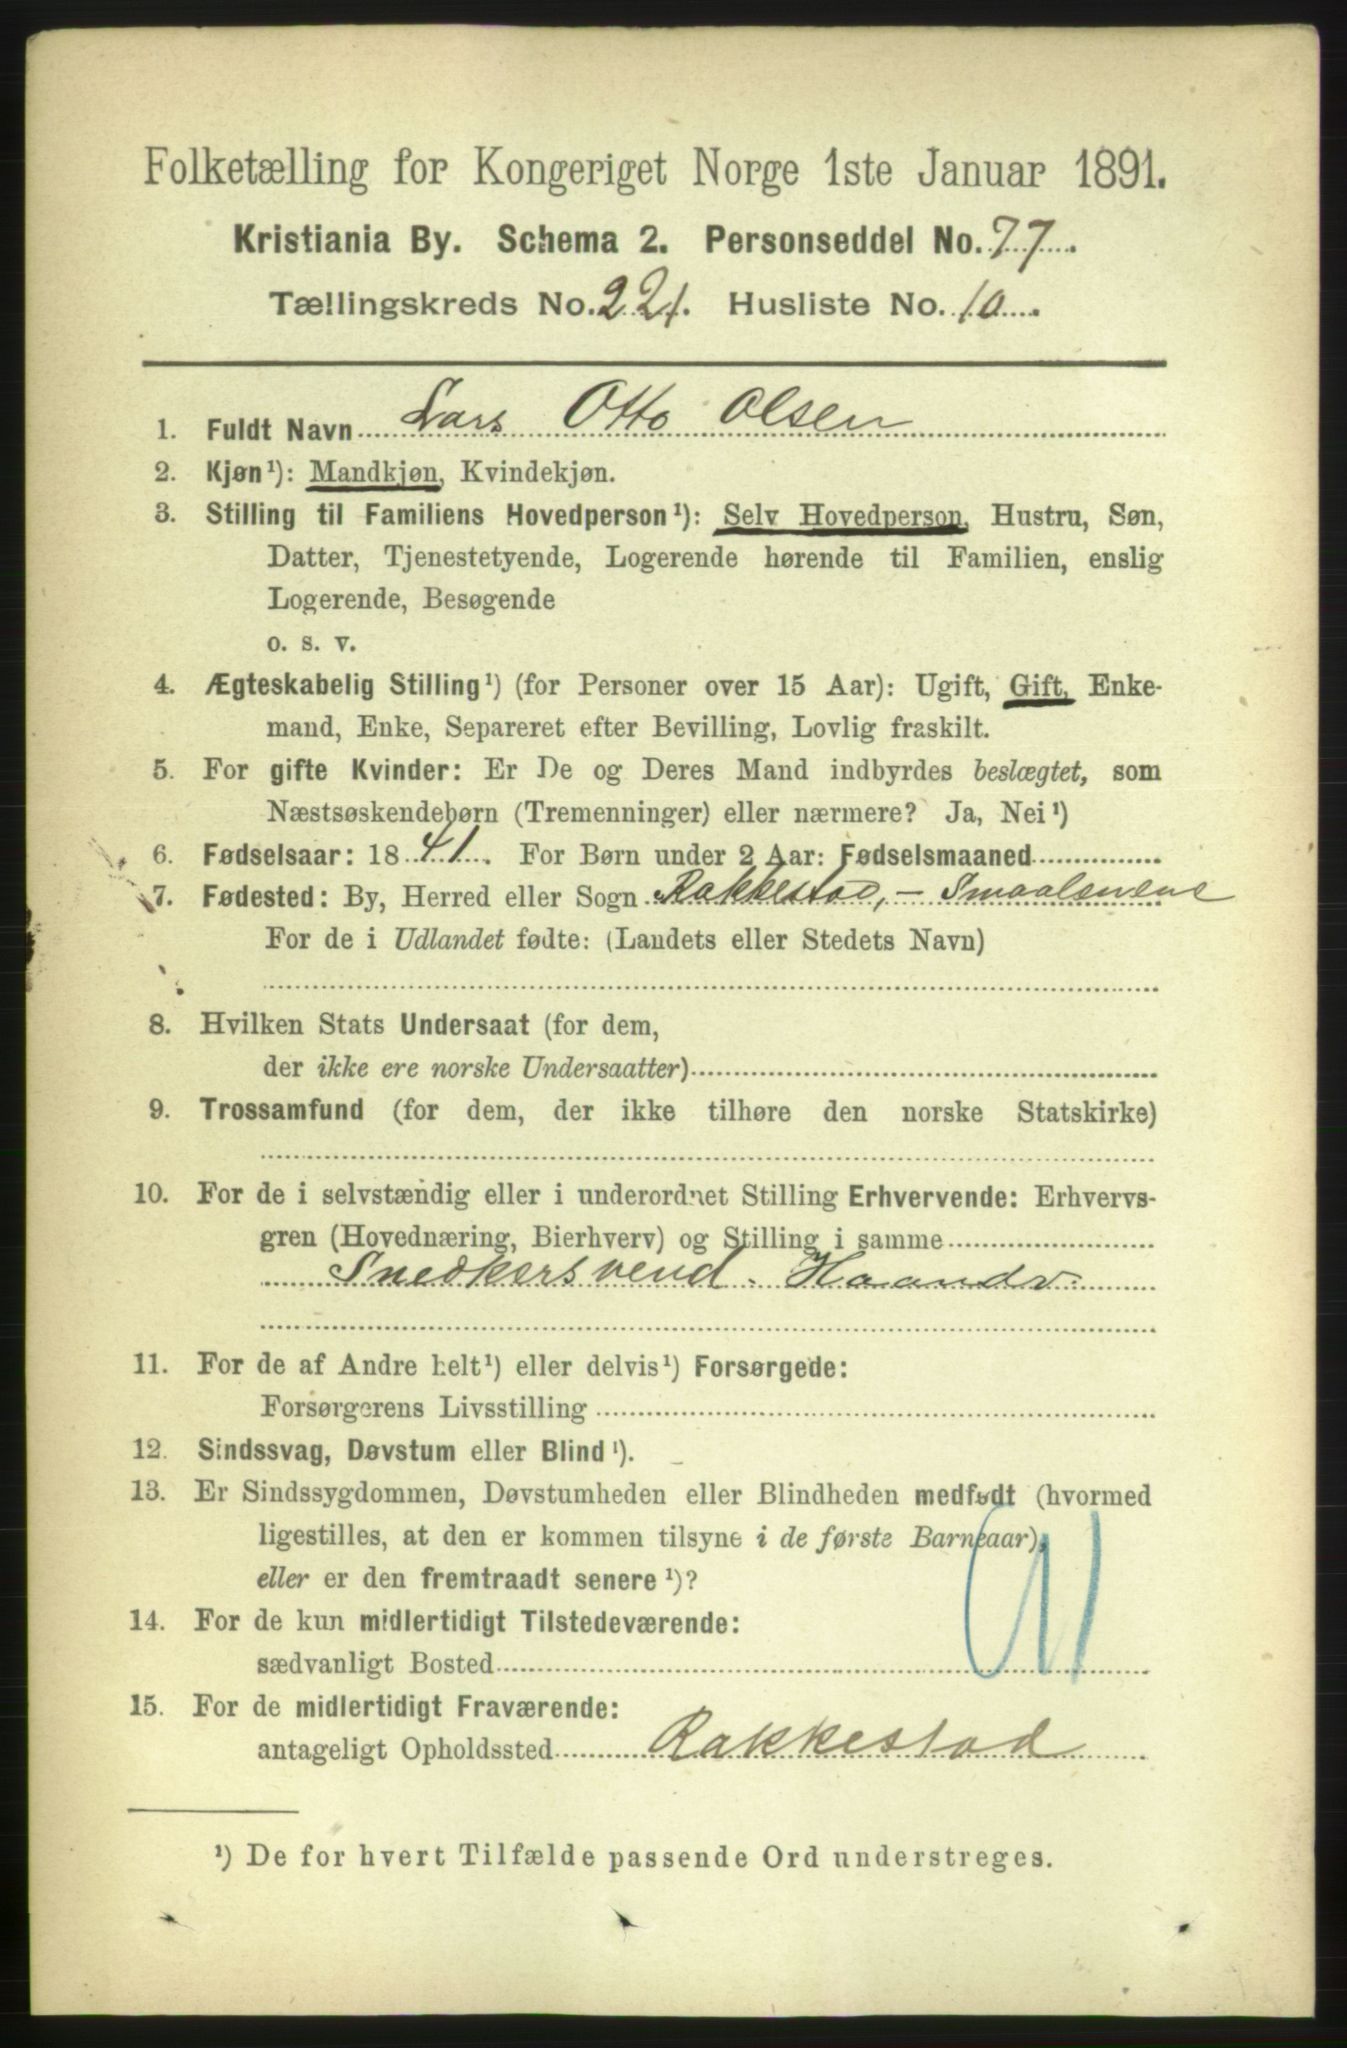 Folketælling for Kongeriget Norge 1ste Januar 1891.
Kristiania By. Schema 2. Personseddel No. 77.
Tællingskreds No. 221. Husliste No. 10.
1. Fuldt Navn Lars Otto Olsen
2. Kjøn¹): Mandkjøn, Kvindekjøn.
3. Stilling til Familiens Hovedperson¹): Selv Hovedperson, Hustru, Søn,
Datter, Tjenestetyende, Logerende hørende til Familien, enslig
Logerende, Besøgende
o. s. v.
4. Ægteskabelig Stilling¹) (for Personer over 15 Aar): Ugift, Gift, Enke-
mand, Enke, Separeret efter Bevilling, Lovlig fraskilt.
5. For gifte Kvinder: Er De og Deres Mand indbyrdes beslægtet, som
Næstsøskendebørn (Tremenninger) eller nærmere? Ja, Nei¹)
6. Fødselsaar: 1841. For Børn under 2 Aar: Fødselsmaaned
7. Fødested: By, Herred eller Sogn Rakkestad, - Smaalenene
For de i Udlandet fødte: (Landets eller Stedets Navn)
8. Hvilken Stats Undersaat (for dem,
der ikke ere norske Undersaatter)
9. Trossamfund (for dem, der ikke tilhøre den norske Statskirke)
10. For de i selvstændig eller i underordnet Stilling Erhvervende: Erhvervs-
gren (Hovednæring, Bierhverv) og Stilling i samme
Snedkersvend. Haandv.
11. For de af Andre helt¹) eller delvis¹) Forsørgede:
Forsørgerens Livsstilling
12. Sindssvag, Døvstum eller Blind¹).
13. Er Sindssygdommen, Døvstumheden eller Blindheden medfødt (hvormed
ligestilles, at den er kommen tilsyne i de første Barneaar),
eller er den fremtraadt senere¹)?
14. For de kun midlertidigt Tilstedeværende:
sædvanligt Bosted
15. For de midlertidigt Fraværende:
antageligt Opholdssted Rakkestad
¹) De for hvert Tilfælde passende Ord understreges.